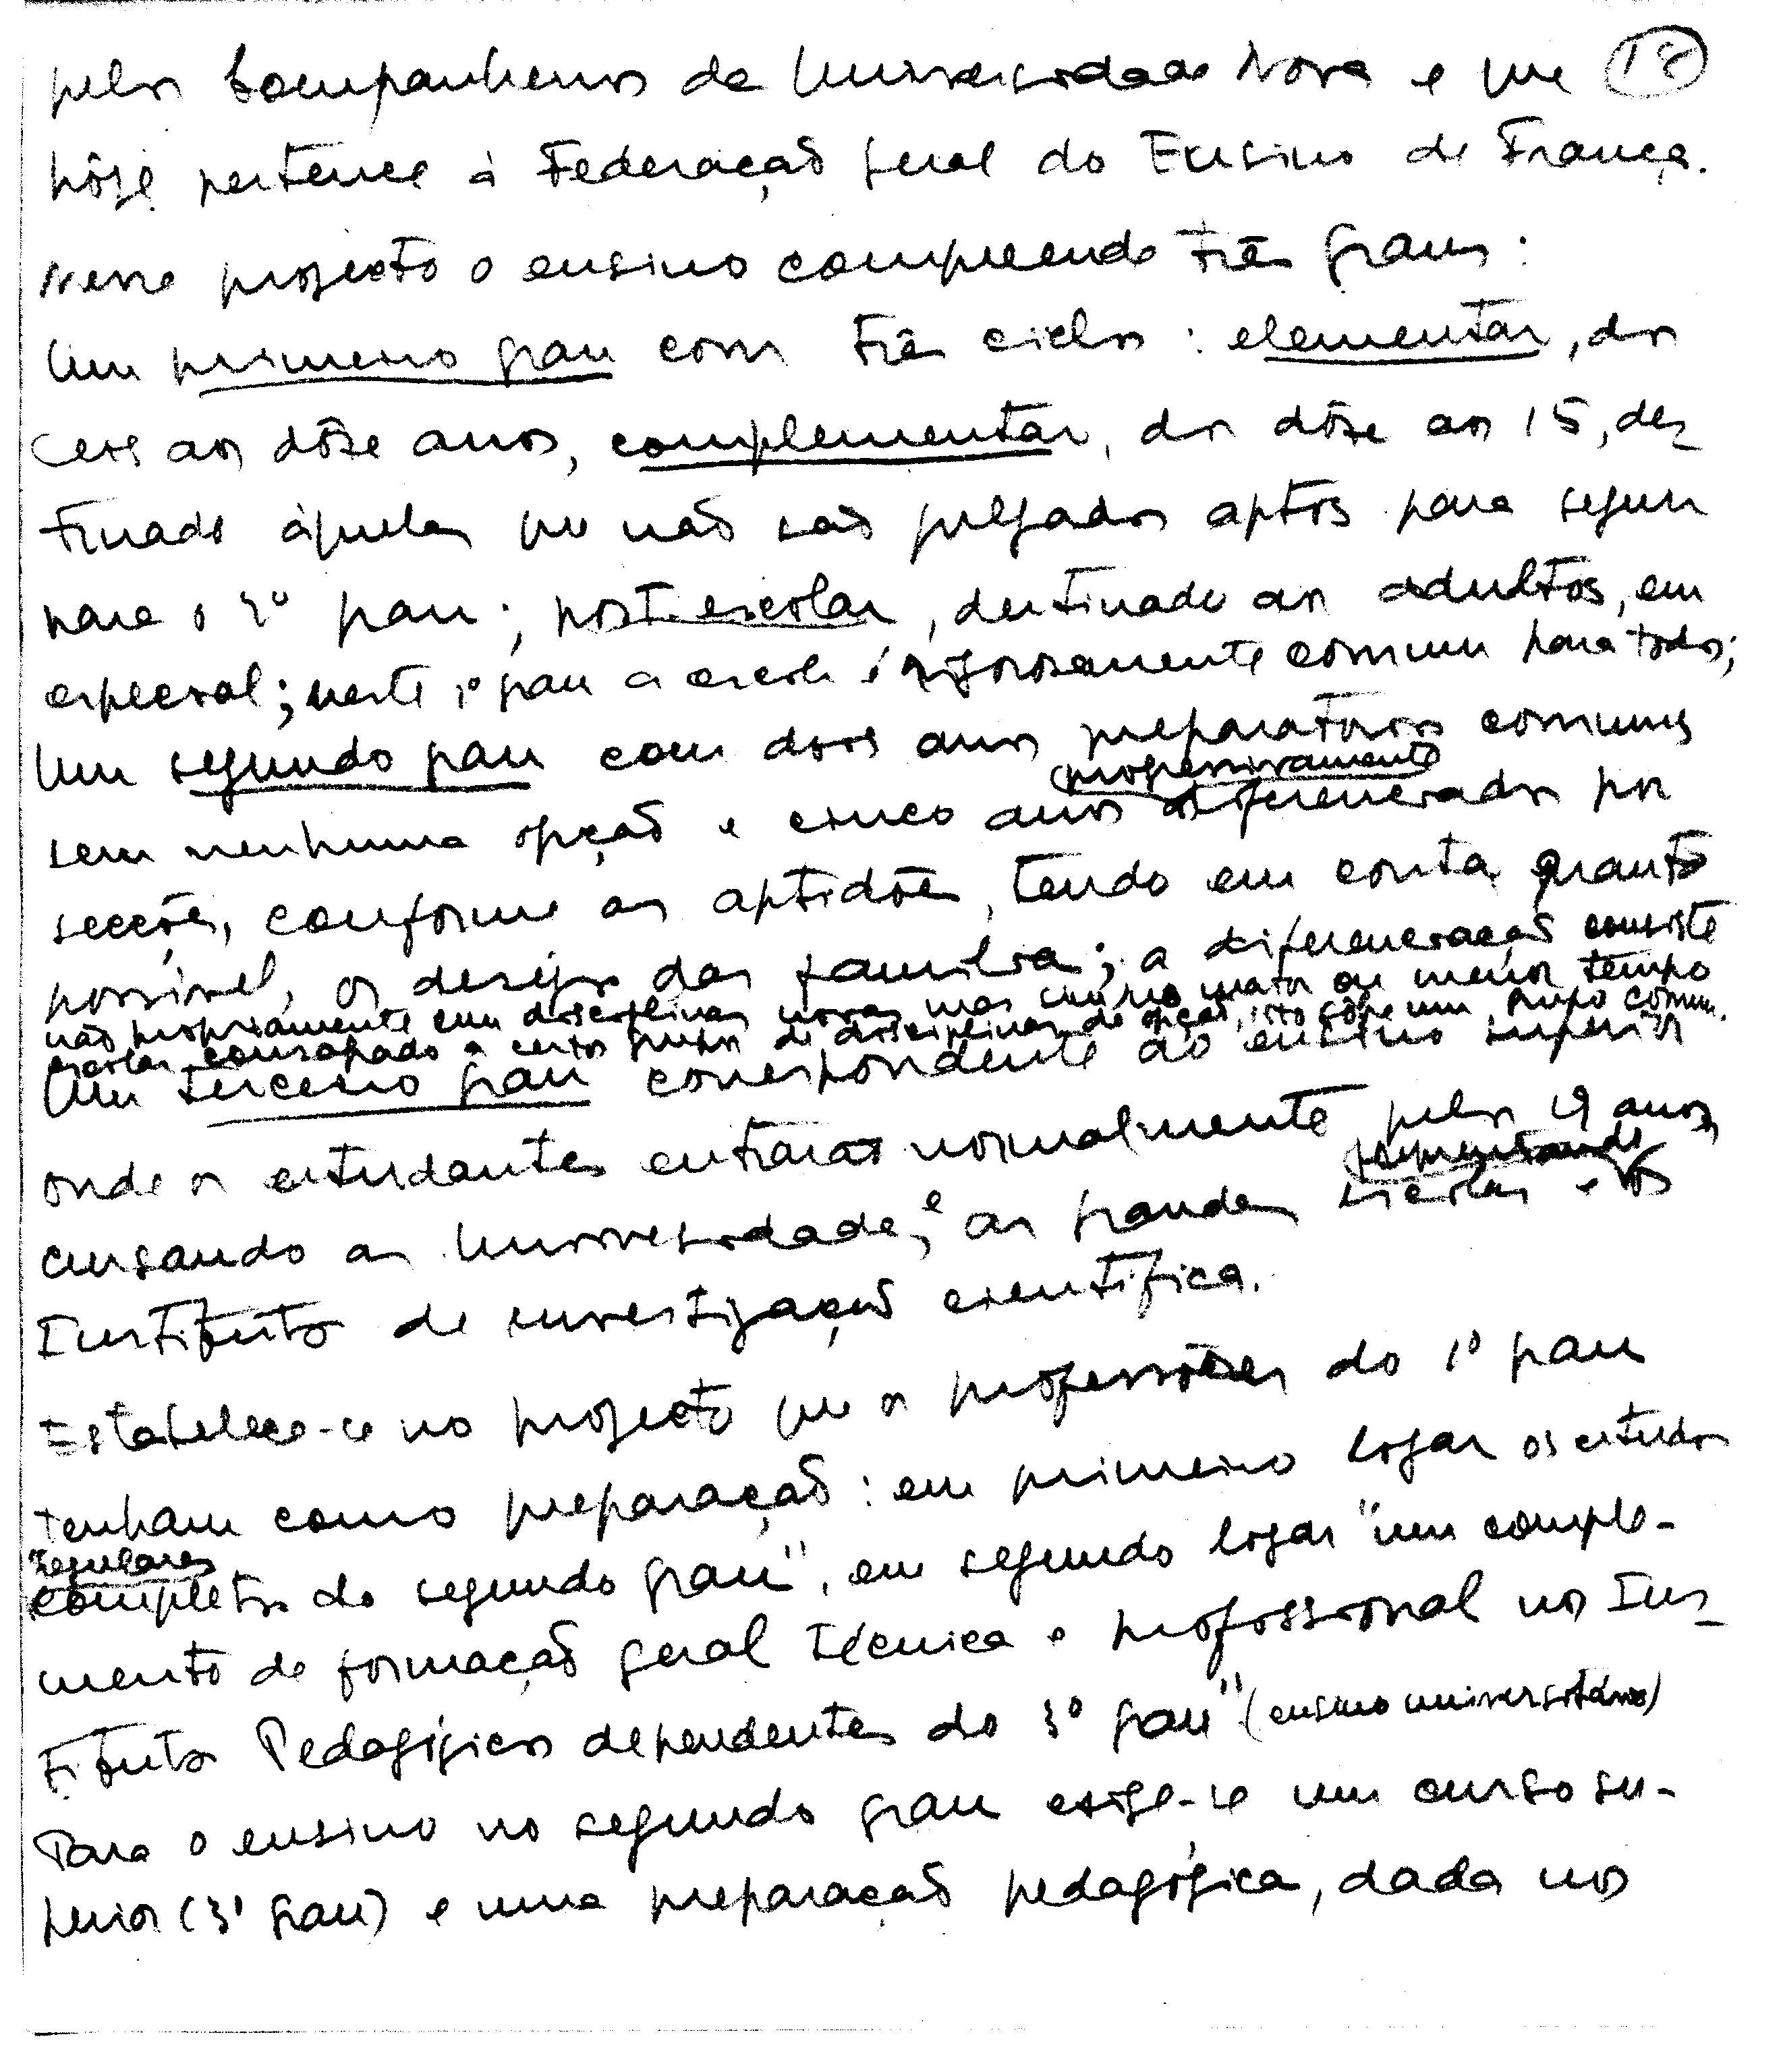 pelos Companheiros da Universidade Nova e que 18
hôje pertence à Federação Geral do Ensino de França.
Nesse projecto o ensino compreende três graus:
Um primeiro grau com três ciclos: elementar, dos
seis aos dôze anos, complementar, dos dôze aos 15, des-
tinado àqueles que não são julgados aptos para seguir
para o 2º grau; post-escolar, destinado aos adultos, em
especial; neste 1º grau a escola é rigorosamente comum para todos;
Um segundo grau com dois anos preparatorios comuns
progressivamente
sem nenhuma opção e cinco anos diferenciados por
secções, conforme as aptidões, tendo em conta, quanto
possivel, os desejos das familias; a diferenciação consiste
não propriamente em disciplinas novas mas num maior ou menor tempo
escolar consagrado a certos grupos de disciplinas de opção, isto sôbre um grupo comum.
Um terceiro grau correspondente ao ensino superior
onde os estudantes entrarão normalmente pelos 19 anos,
cursando as Universidades, e as grandes Escolas e os
Institutos de investigação cientifica.
Estabelece-se no projecto que os professôres do 1º grau
tenham como preparação: em primeiro logar os estudos
"regulares
completos do segundo grau", em segundo logar "um comple-
mento de formação geral técnica e profissional nos Ins-
titutos Pedagógicos dependentes do 3º grau" (ensino universitário)
Para o ensino no segundo grau exige-se um curso su-
perior (3º grau) e uma preparação pedagógica, dada nos